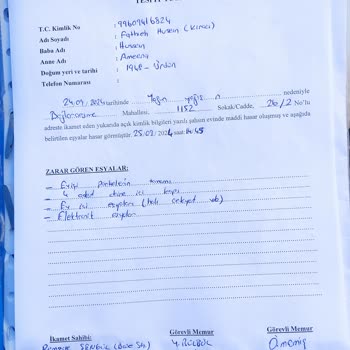 T.C. Kimlik No : 99609416824
Adı Soyadı : Fatheh Husein (Kiracı)
Baba Adı : Hussein
Anne Adı : Ameena
Doğum yeri ve tarihi : 1948 - Ürdün
Telefon Numarası :
24.09.2024 tarihinde Yağın yağış nedeniyle
Değirmenönü Mahallesi, 1152 Sokak/Cadde, 26/2 No'lu
adreste ikamet eden yukarıda açık kimlik bilgileri yazılı şahsın evinde maddi hasar oluşmuş ve aşağıda
belirtilen eşyalar hasar görmüştür. 25.09.2024 saat: 14:45
ZARAR GÖREN EŞYALAR:
- Evin parkelerin tamamı
- 4 adet daire içi kapı
- Ev içi eşyaları (halı vb)
- Elektronik eşyalar
İkamet Sahibi: Görevli Memur Görevli Memur